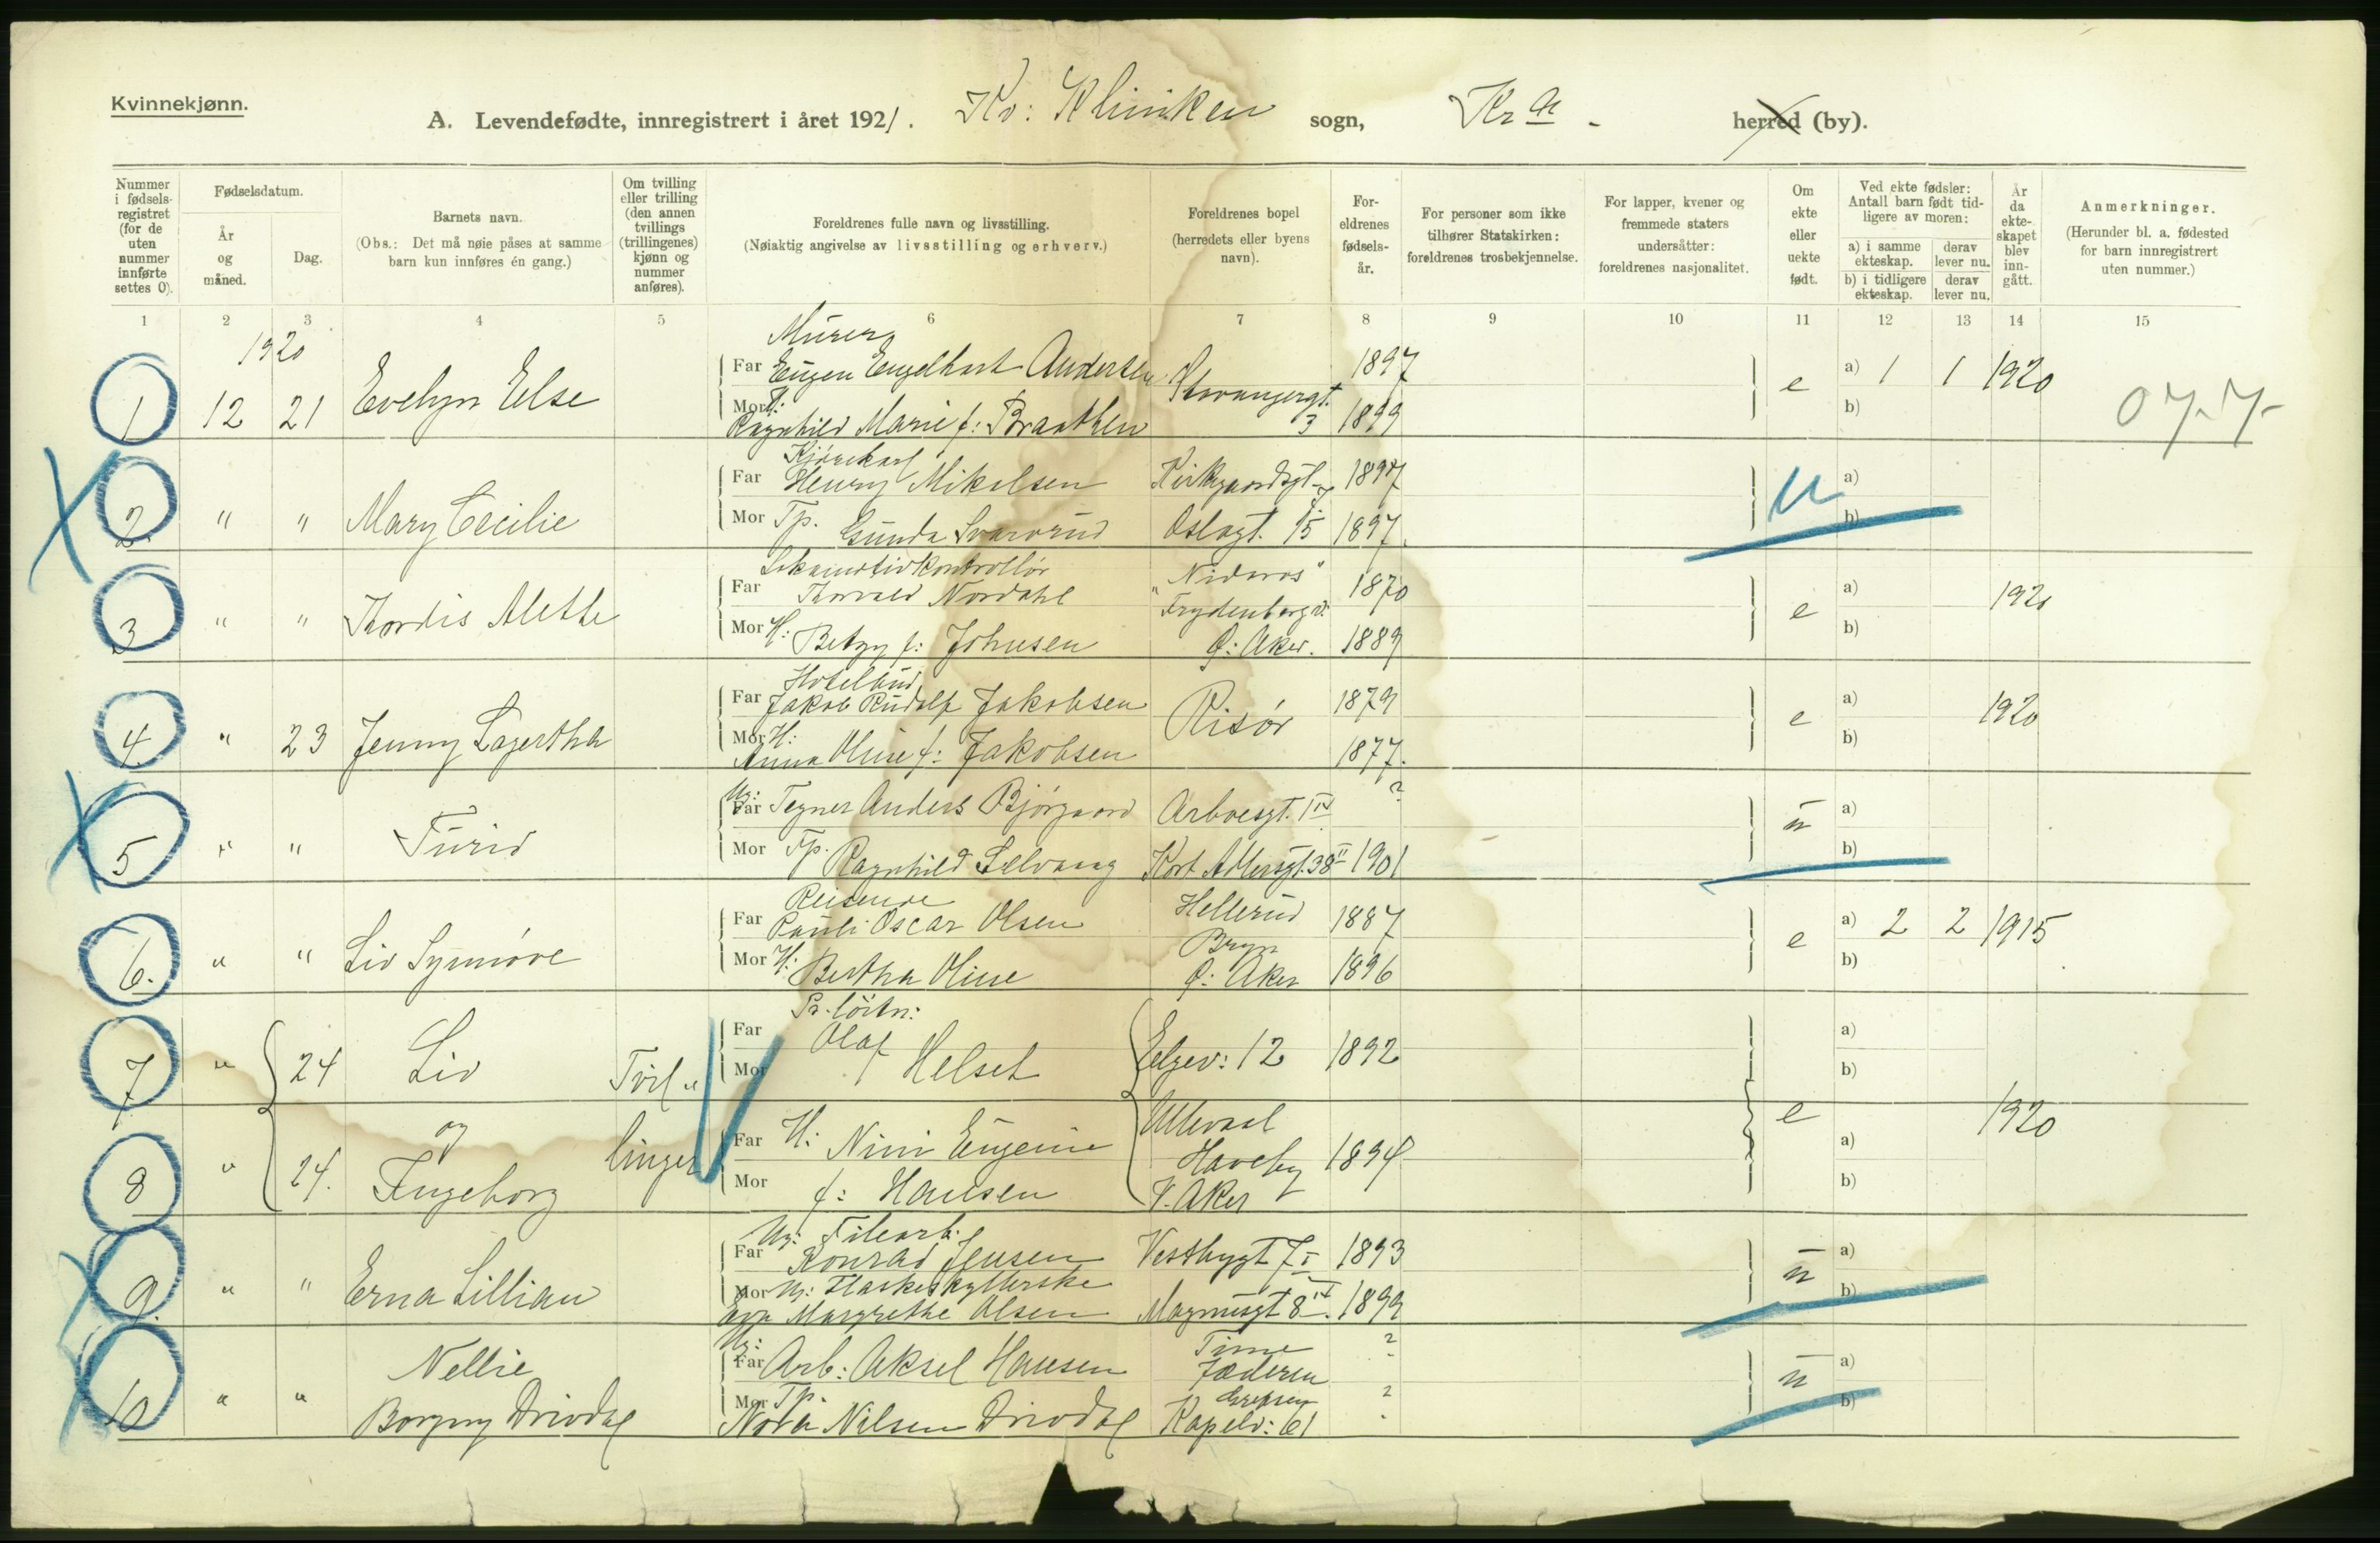 Kvinnekjønn.
A. Levendefødte, innregistrert i året 1921. Kv: Kliniken sogn, Kra. herred (by).
Nummer i fødselsregistret (for de uten nummer innførte settes 0).
Fødselsdatum.
År og måned.
Dag.
Barnets navn.
(Obs.: Det må nøie påses at samme barn kun innføres én gang.)
Om tvilling eller trilling (den annen tvillings (trillingenes) kjønn og nummer anføres).
Foreldrenes fulle navn og livsstilling.
(Nøiaktig angivelse av livsstilling og erhverv.)
Foreldrenes bopel (herredets eller byens navn).
Foreldrenes fødselsår.
For personer som ikke tilhører Statskirken: foreldrenes trosbekjennelse.
For lapper, kvener og fremmede staters undersåtter: foreldrenes nasjonalitet.
Om ekte eller uekte født.
Ved ekte fødsler: Antall barn født tidligere av moren:
a) i samme ekteskap.
derav lever nu.
b) i tidligere ekteskap.
derav lever nu.
År da ekteskapet blev inngått.
Anmerkninger.
(Herunder bl. a. fødested for barn innregistrert uten nummer.)
1 2 3 4 5 6 7 8 9 10 11 12 13 14 15
1920
Murer
1 12 21 Evelyn Else Far Eugen Engelhart Andersen Stavangergt. 3 1897 e a) 1 1 1920
Mor H: Ragnhild Marie f: Braathen 1899 b)
Kjørekarl
2 " " Mary Cecilie Far Henry Mikalsen Kirkegaardsgt. 7 1897 u a)
Mor Tp. Gunda Svarverud Oslogt. 15 1897. b)
Lokomotivkontrollør
3 " " Thordis Alethe Far Thorvald Nordahl "Nidaros" 1870 e a) 1920
"Frydenberg v:
Mor H: Betzy f: Johnsen Ø: Aker. 1889 b)
Hotelbud
4. " 23 Jenny Lagertha Far Jakob Rudolf Jakobsen Risör 1879 e a) 1920
Mor H: Anna Oline f: Jakobsen 1877. b)
5 " " Turid Ug: Far Tegner Anders Bjørgaard Arboesgt. 1 IV ? u a)
Mor Tp. Ragnhild Selvaag Kort Adlersgt. 38 II 1901 b)
Reisende
6. " " Liv Synnøve Far Pauli Oscar Olsen Hellerud 1887 e a) 2 2 1915
Bryn
Mor H: Bertha Oline Ø: Aker 1896 b)
Pr. löitn:
7 " 24 Liv Tvil- Far Olaf a)
Mor Helset Eelgev: 12 1892 b)
og e 1920
8 " 24. Ingeborg linger Far H: Nini Eugenie Ullevaal Haveby 1894 a)
Mor f: Hansen V. Aker b)
Ug: Filearb.
9. " " Erna Lillian Far Konrad Jensen Vestbygt 7 I 1893 u a)
Mor Ug: Flaskeskyllerske
Margrethe Olsen Magnusgt 8 IV. 1899 b)
Ug:
10 " " Nellie Far Arb: Aksel Hansen Time Jæderen ? u a)
Borgny Drivdal Mor Tp. Nora Nilsen Drivdal Grefsen Kapelv: 61 ? b)